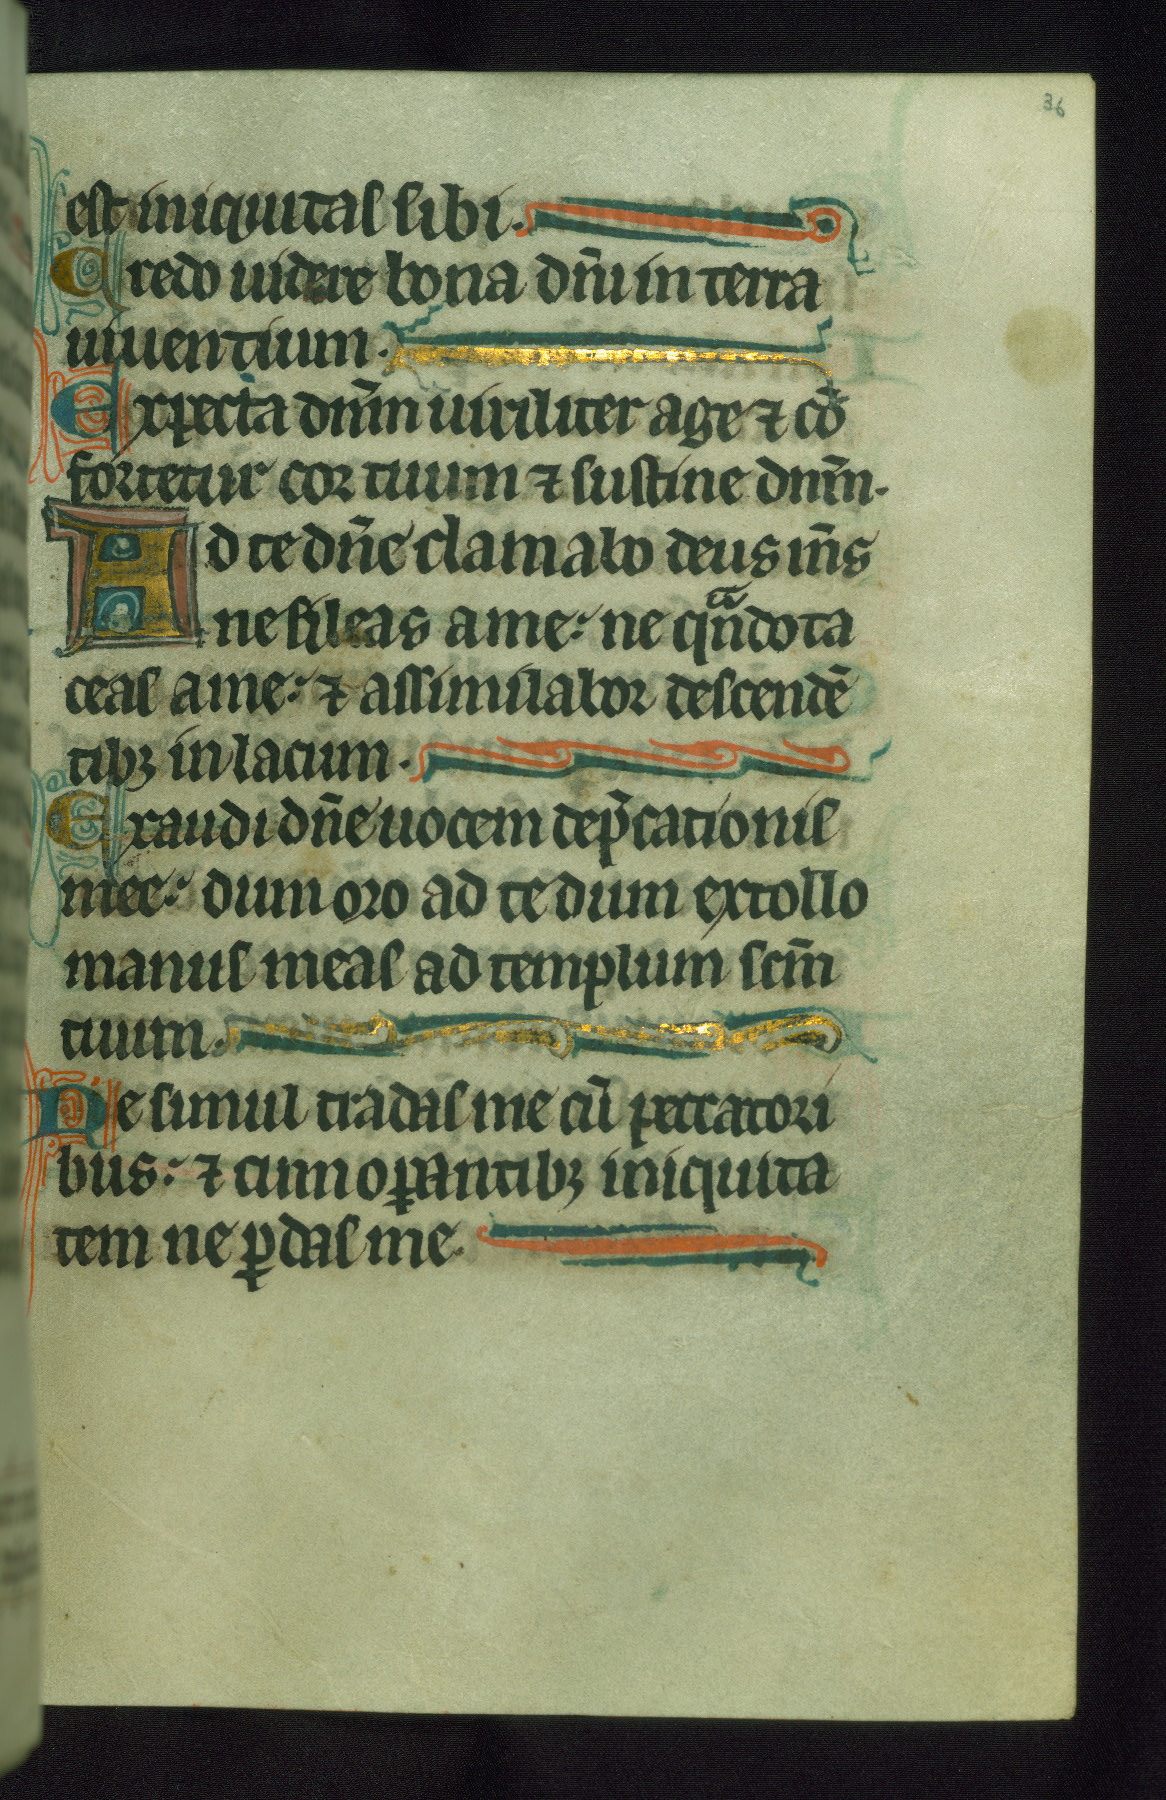 36
est iniquitas sibi.
Credo uidere bona dn̄i in terra
uiuentium.
Expecta dn̄m uiriliter age ⁊ cō
fortetur cor tuum ⁊ sustine dn̄m.
Ad te dn̄e clamabo deus m̄s
ne sileas a me: ne qn̄do ta
ceas a me: ⁊ assimilabor descendē
tibꝫ in lacum.
Exaudi dn̄e uocem dep̄cationis
mee: dum oro ad te dum extollo
manus meas ad templum scm̄
tuum.
Ne simul tradas me cū peccatori
bus: ⁊ cum oꝑantibꝫ iniquita
tem ne ꝑdas me.